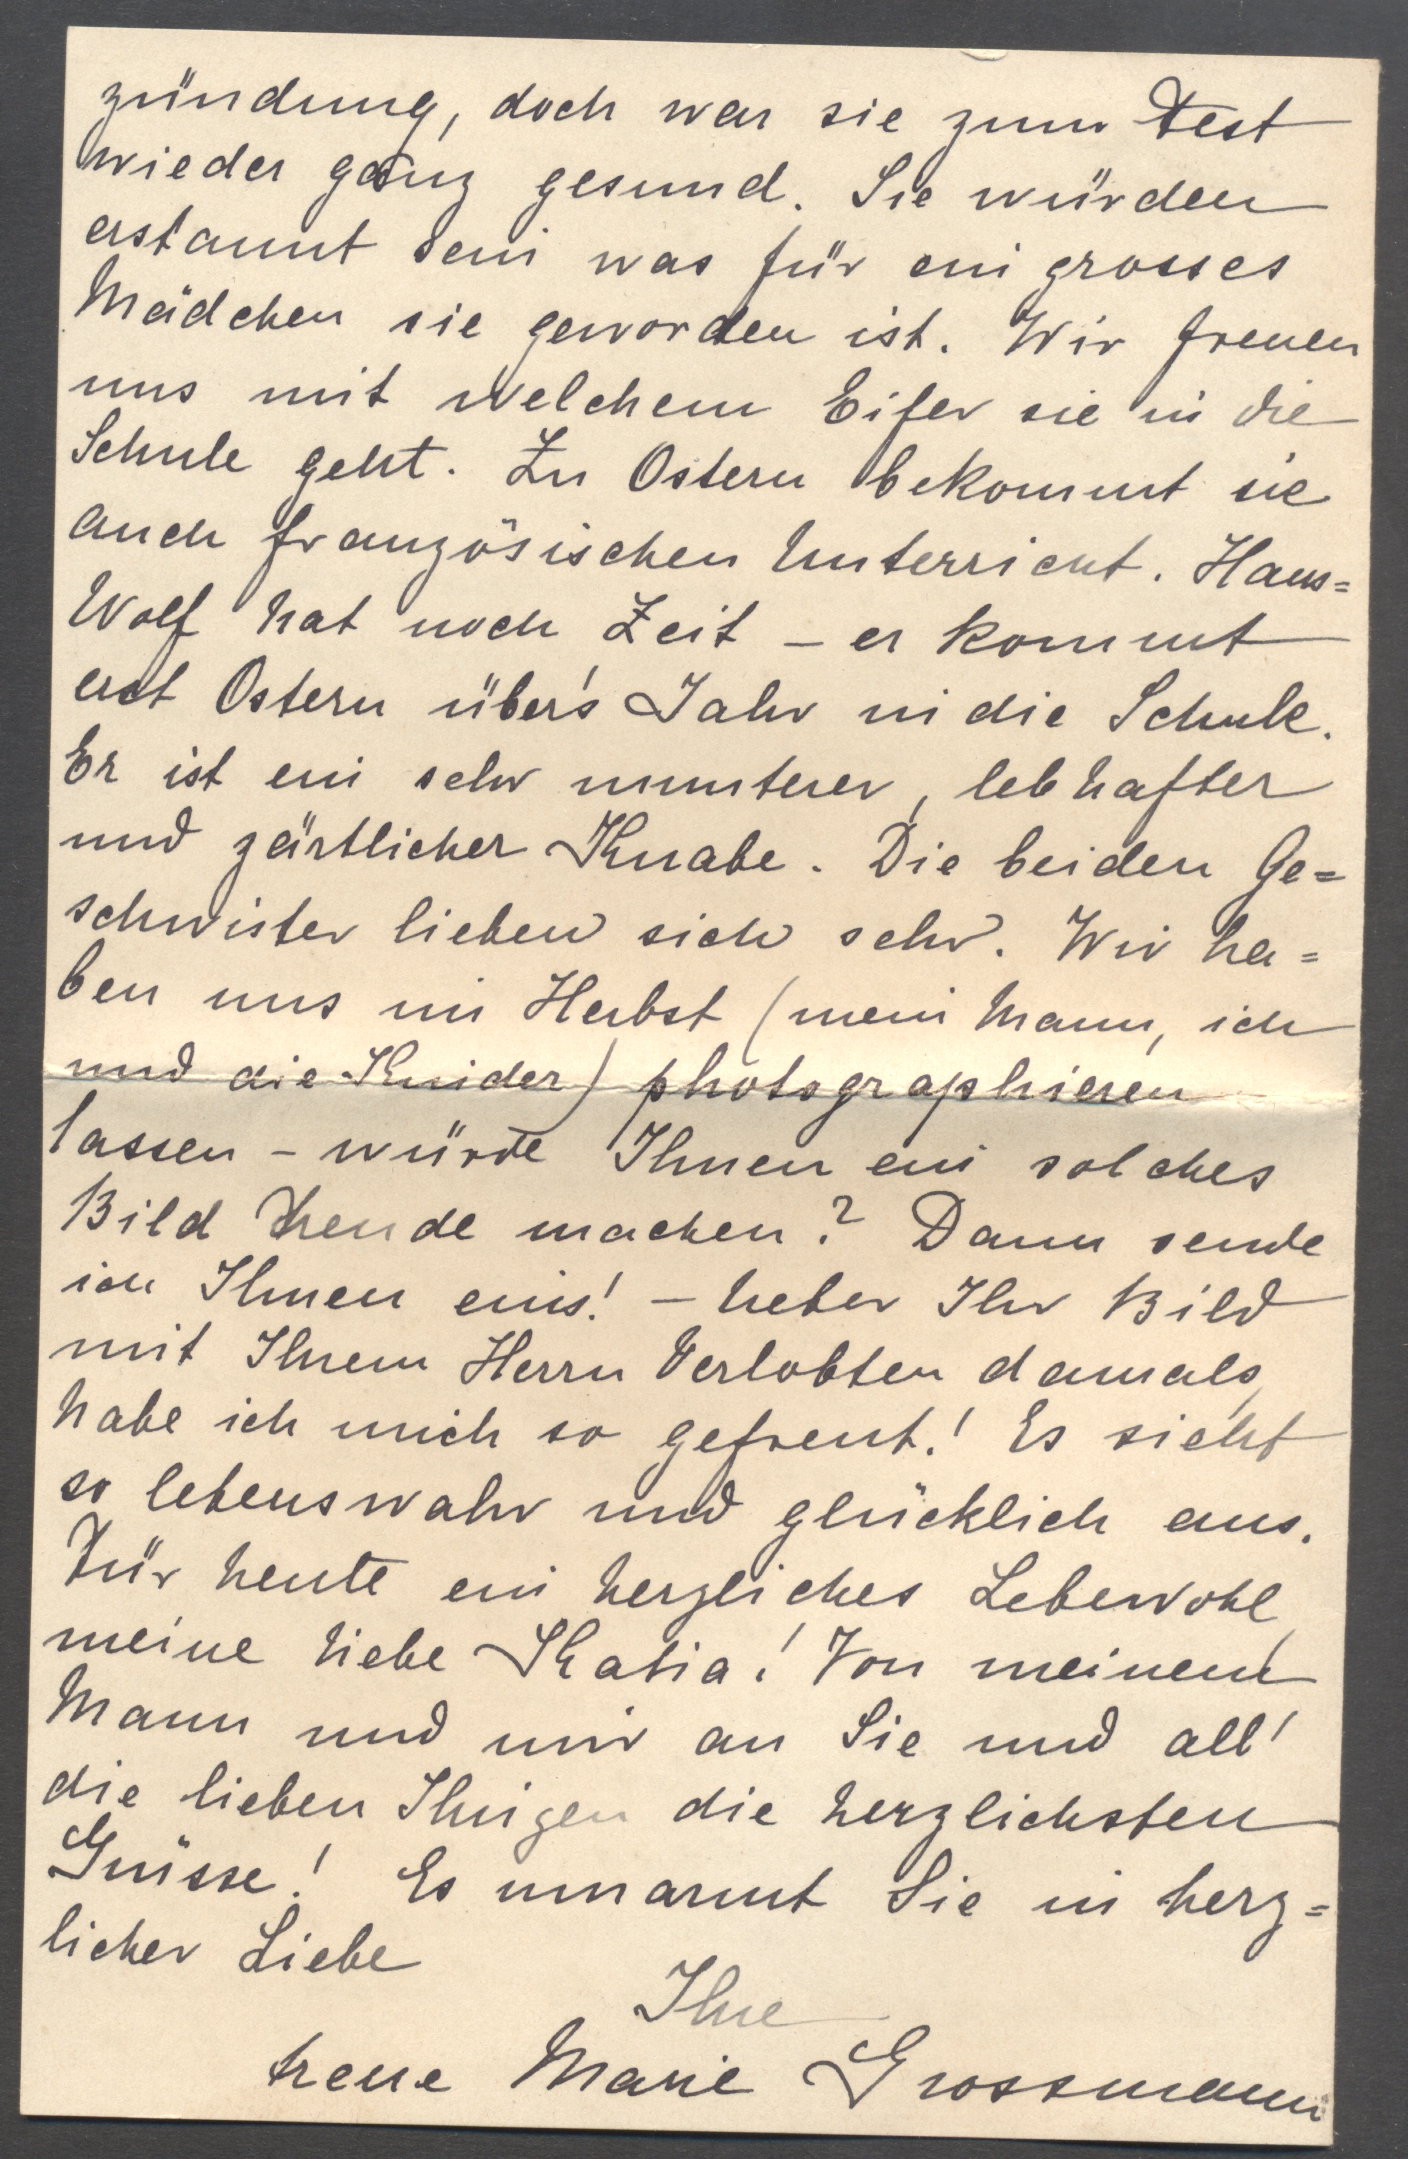 zündung, doch war sie zum Fest
wieder ganz gesund. Sie würden
erstaunt sein was für ein grosses
Mädchen sie geworden ist. Wir freuen
uns mit welchem Eifer sie in die
Schule geht. Zu Ostern bekommt sie
auch französischen Unterricht. Hans=
Wolf hat noch Zeit – er kommt
erst Ostern über's Jahr in die Schule.
Er ist ein sehr munterer, lebhafter
und zärtlicher Knabe. Die beiden Ge=
schwister lieben sich sehr. Wir ha=
ben uns im Herbst (mein Mann, ich
und die Kinder) photographieren
lassen – würde Ihnen ein solches
Bild Freude machen? Dann sende
ich Ihnen eins! – Ueber Ihr Bild
mit Ihrem Herrn Verlobten damals
habe ich mich so gefreut! Es sieht
so lebenswahr und glücklich aus.
Für heute ein herzliches Lebewohl
meine liebe Katia! Von meinem
Mann und mir an Sie und all'
die lieben Ihrigen die herzlichsten
Grüsse! Es umarmt Sie in herz=
licher Liebe
Ihre
treue Marie Grossmann